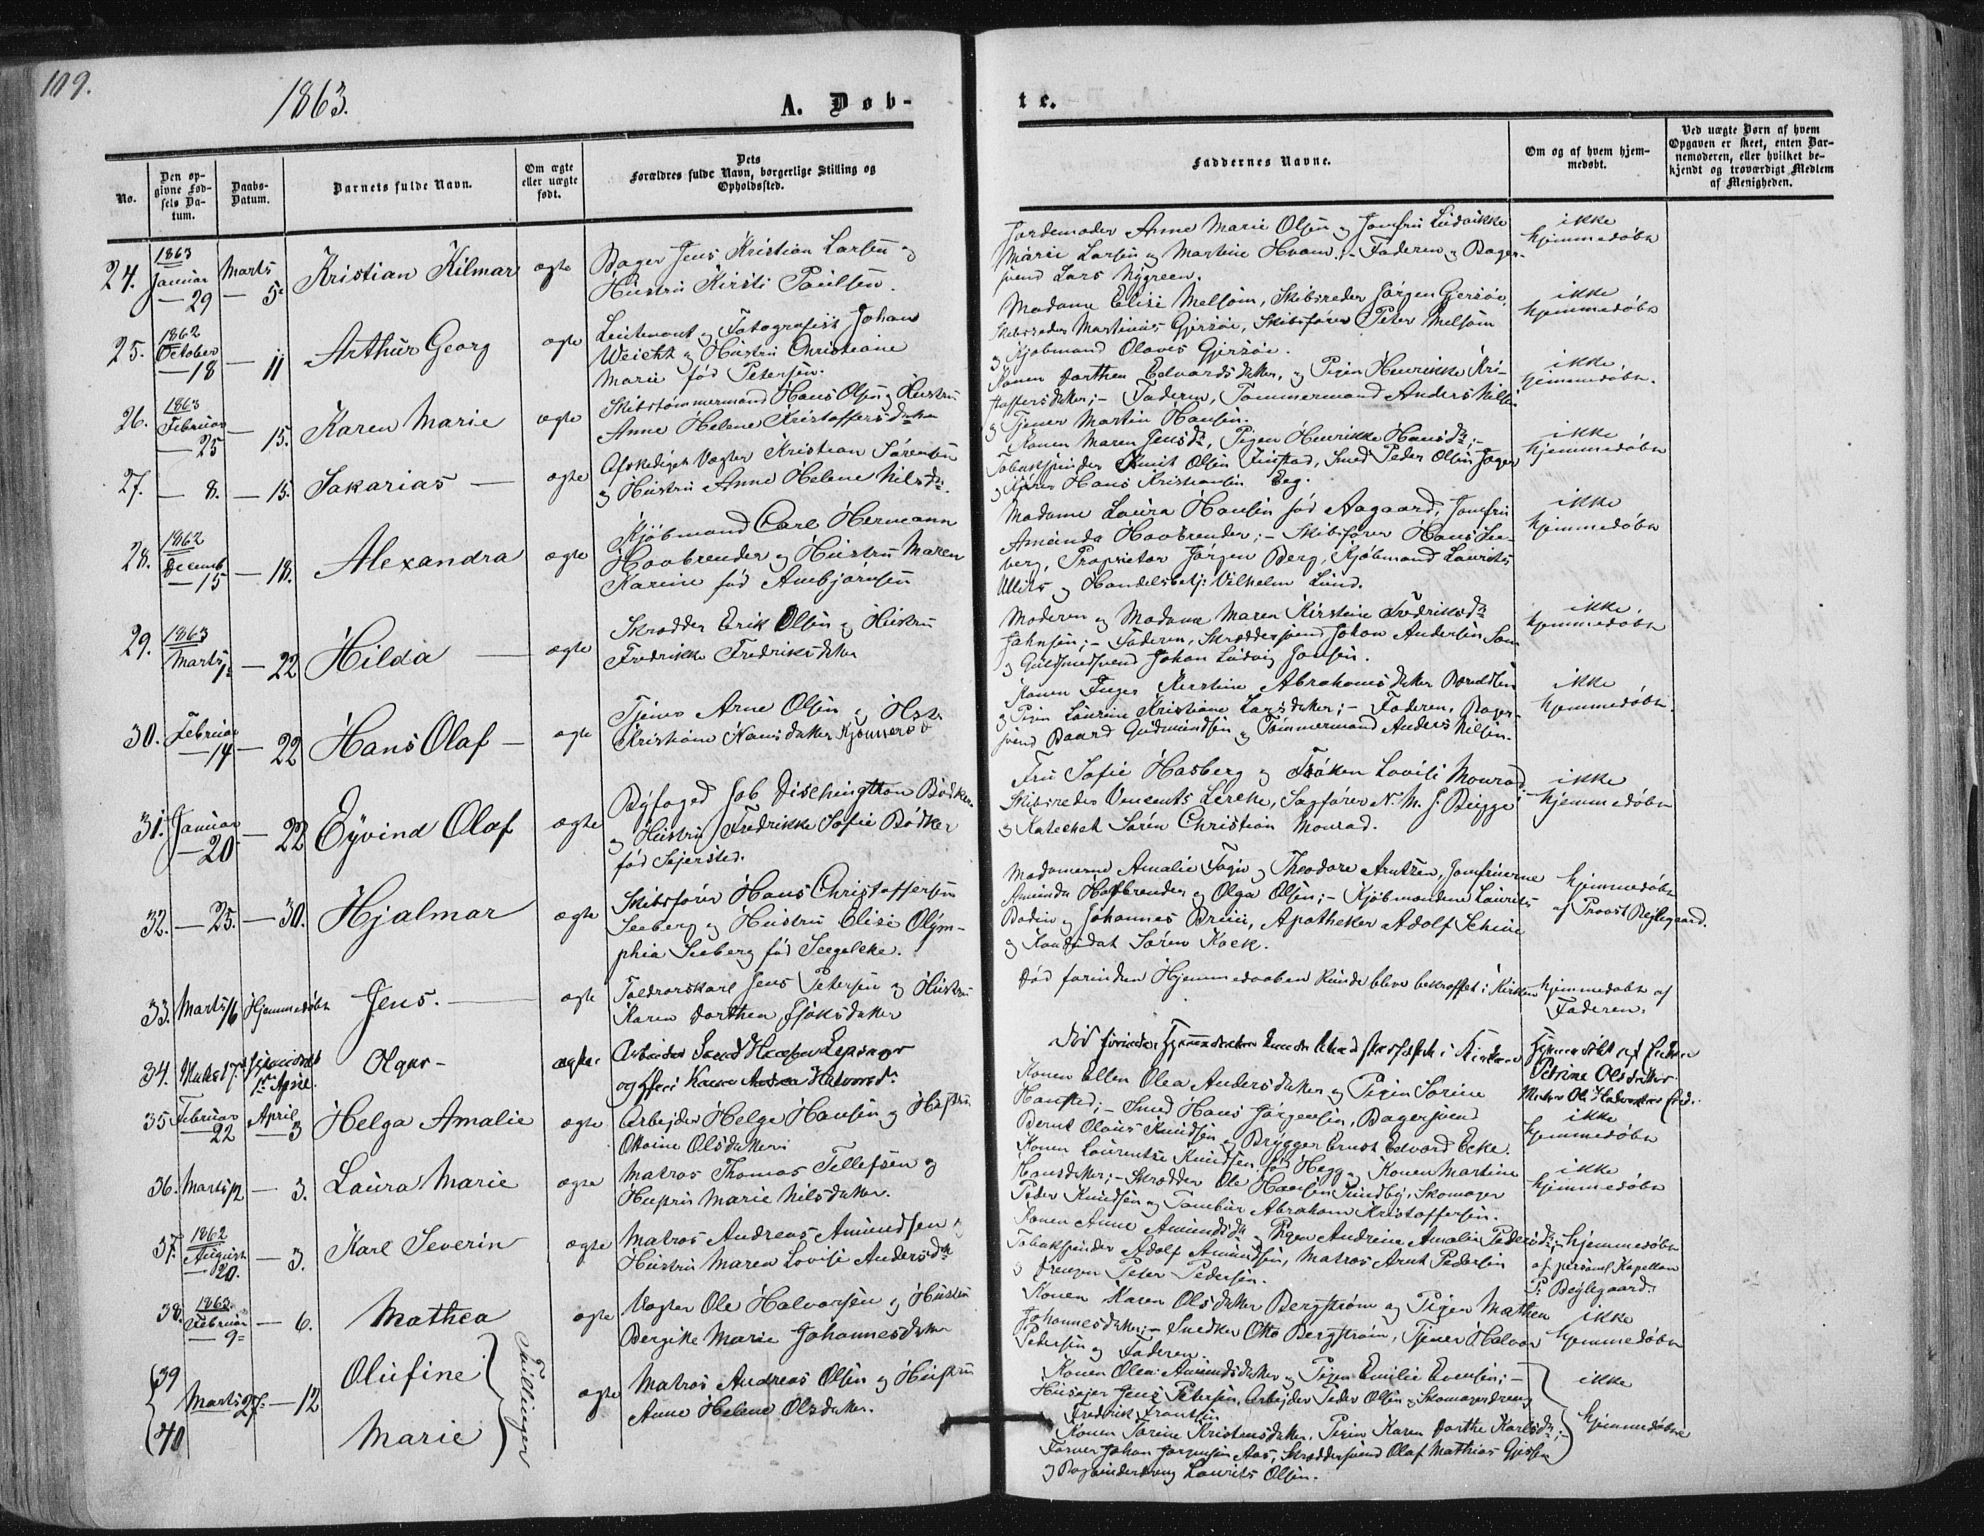 109.
1863.
A. Døb-
te.
No.
Den op-
givne Fød-
sels Da-
tum.
Daabs-
Datum.
Barnets fulde Navn.
Om ægte
eller uægte
født.
Dets
Forældres fulde Navn, borgerlige Stilling og
Opholdssted.
Faddernes Navne.
Om og af hvem hjem-
medøbt.
Ved uægte Børn af hvem
Opgaven er skeet, enten Bar-
nemoderen, eller hvilket be-
kjendt og troværdigt Medlem
af Menigheden.
24.
1863
Januar
— 29
Marts
— 5te
Kristian Hilmar
ægte
Bager Jens Kristian Larsen og
Hustru Kirsti Paulsen.
Jordemoder Anne Marie Olsen og Jomfru Ludvikke
Marie Larsen og Martine Hvam; – Faderen og Bager-
svend Lars Nygreen.
ikke
hjemmedøbt
25.
1862
October
— 18
— 11
Arthur Georg
ægte
Leutenant og Fotografist Johan
Weicht og Hustru Christiane
Marie fød Petersen.
Madame Elise Melsom, Skibsreder Jørgen Gjersøe,
Skibsreder Martinius Gjersøe, Skibsfører Peter Melsom
og Kjøbmand Olavis Gjersøe.
ikke
hjemmedøbt
26.
1863
Februar
— 25
— 15.
Karen Marie
ægte
Skibstømmermand Hans Olsen og Hustru
Anne Helene Kristoffersdatter
Konen Dorthea Edvardsdatter, og Pigen Henrikke Kri-
stoffersdatter; – Faderen, Tømmermand Anders Nilsen
og Tjener Martin Hansen.
ikke
hjemmedøbt.
27.
— 8.
— 15.
Sakarias —
ægte
Afskediget Vægter Kristian Sørensen
og Hustru Anne Helene Nilsdr.
Konen Maren Jensdr, Pigen Henrikke Hansdr; –
Tobakspinder Knut Olsen Finstad, Smed Peder Olsen Jager
og Hans Kristiansen Eeg.
ikke
hjemmedøbt
28.
1862
Decemb
— 15
— 18.
Alexandra
ægte
Kjøbmand Carl Hermann
Hovbrender og Hustru Maren
Karine fød Anbjørnsen
Madame Laura Hansen fød Aagaard, Jomfru
Amanda Hovbrender; – Skibsfører Hans See-
berg, Proprietær Jørgen Berg, Kjøbmand Laurits
Ullits og Handelsbetj: Vilhelm Lund.
ikke
hjemmedøbt
29.
1863
Marts 1ste
— 22
Hilda —
ægte
Skrædder Erik Olsen og Hustru
Fredrikke Fredriksdatter
Moderen og Madame Maren Kirstine Fredriksdr
Jahnsen; – Faderen, Skræddersvend Johan Andersen
og Guldsmedsvend Johan Ludvig Jonsen.
ikke
hjemmedøbt
30.
Februar
— 14
— 22
Hans Olaf —
ægte
Tjener Arne Olsen og Hst.
Kristiane Hansdatter Kjønnersø
Konen Inger Kirstine Abrahamsdatter Berndtsen
og Pigen Laurine Kristiane Larsdatter; – Faderen, Bager-
svend Baard Gudmundsen og Tømmermand Anders Nilsen.
ikke
hjemmedøbt.
31.
Januar
— 20
— 22
Eyvind Olaf
ægte
Byfoged Job Dischingthon Bødker
og Hustru Fredrikke Sofie Bødker
fød Sejersted.
Fru Sofie Hasberg og Frøken Lovise Monrad –
Skibsreder Vincents Lerche, Sagfører N. M. J. Bugge
og Katechet Søren Christian Monrad.
ikke
hjemmedøbt
32.
— 25.
— 30.
Hjalmar
ægte
Skibsfører Hans Christoffersen
Seeberg og Hustru Elise Olym-
phia Seeberg fød Seegelcke.
Madamerne Amalie Foyn og Theodore Arntzen, Jomfruerne
Amanda Hovbrender og Olga Olsen; – Kjøbmændene Laurits
Bodin og Johannes Bruu, Apotheker Adolf Schive
og Kandidat Søren Kock.
hjemmedøbt
af Provst Bejlegaard.
33.
Marts 16
Hjemmedøbt
Jens. —
ægte
Toldrorskarl Jens Petersen og Hustru
Karen Dorthea Isaksdatter
Død forinden Hjemmedaaben kunde blive bekræftet i Kirken
hjemmedøbt af
Faderen.
34.
Marts 17de
1ste April.
Olgar –
ægte.
og Hust Karen Andrea Halvorsdr
Død forinden Hjemmedaaben kunde blive stadfæstet i Kirken
Petrine Olsdatter
35.
Februar
— 22
April
— 3
Helga Amalie
ægte
Arbejder Helge Hansen og Hustru
Ottine Olsdatter
Konen Ellen Olea Andersdatter og Pigen Sørine
Hansted; – Smed Hans Jørgensen, Bagersvend
Bernt Olaus Knudsen og Brygger Ernst Edvard Ecke.
ikke
hjemmedøbt
36.
Marts 12
— 3.
Laura Marie
ægte
Matros Thomas Tellefsen og
Hustru Marie Nilsdatter.
Konen Laurentse Knudsen fød Hegg og Konen Martine
Hansdatter; – Skrædder Ole Hansen Sundby, Skomager
Peder Knudsen og Tambur Abraham Kristoffersen.
ikke
hjemmedøbt
37.
1862
August
— 20.
— 3.
Karl Severin
ægte
Matros Andreas Amundsen og
Hustru Maren Lovise Andersdtr
Konen Anne Amundsdr og Pigen Andrine Amalie Pedersdr; –
Tobakspinder Adolf Amundsen, Matros Arnt Pedersen
og Drengen Peter Pedersen.
hjemmedøbt
af personl Kapellan
P. Bejlegaard.
38.
1863.
Februar
— 9de
— 6.
Mathea
ægte
Vægter Ole Halvorsen og Hustru
Bergithe Marie Johannesdatter
Konen Karen Olsdatter Bergstrøm og Pigen Mathea
Johannesdatter; – Snedker Otto Bergstrøm, Tjener Halvor
Petersen og Faderen.
ikke
hjemmedøbt
39
40
Marts 27de
— 12
Olufine
Marie
Tvillinger
ægte
Matros Andreas Olsen og Hustru
Anne Helene Olsdatter.
Konen Olea Amundsdatter og Pigen Emilie Evensen; –
Husejer Jens Petersen, Arbejder Peder Olsen og Skomagerdreng
Fredrik Frantsen
Konen Sørine Kristensdatter, Pigen Karen Dorthe Karlsdr; –
Farver Johan Jørgensen Aas, Skræddersvend Olaf Mathias Gjersøe
og Bogbinderdreng Laurits Olsen.
ikke
hjemmedøbt